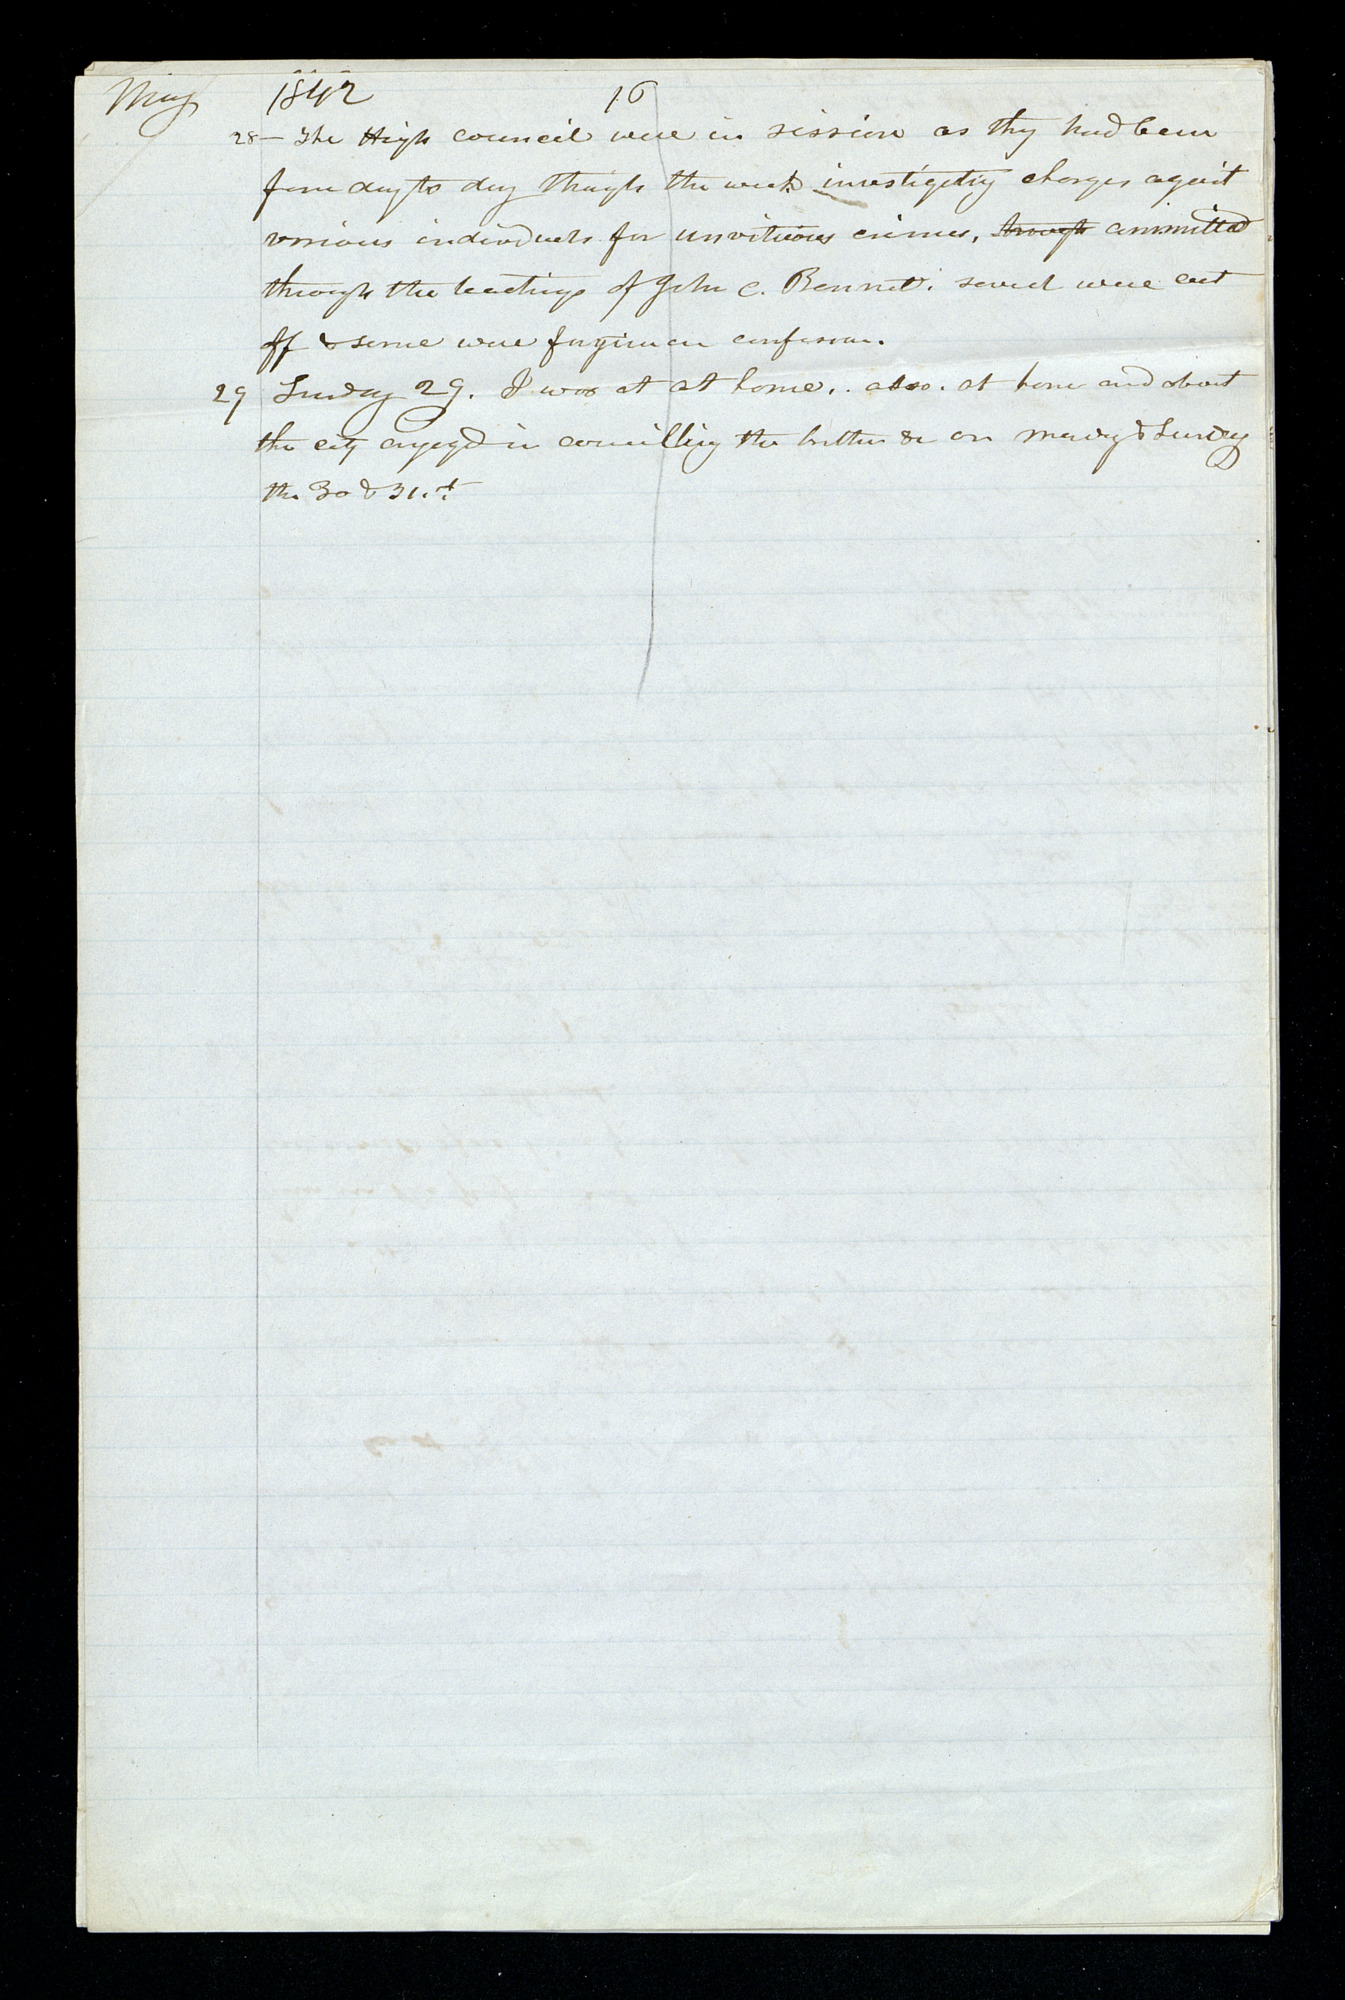 May 1842 16
28 — The High council were in session as thy had been
from day to day through the week investigating charges against
various individuals for unvirtuous crimes, through committed
through the teachings of John C. Bennett. several were cut
off & some were forgiven on confession.
29 Sunday 29. I was at at home.. also. at home and about
the city engaged in councilling the brethren &c on &
the 30 & 31.st